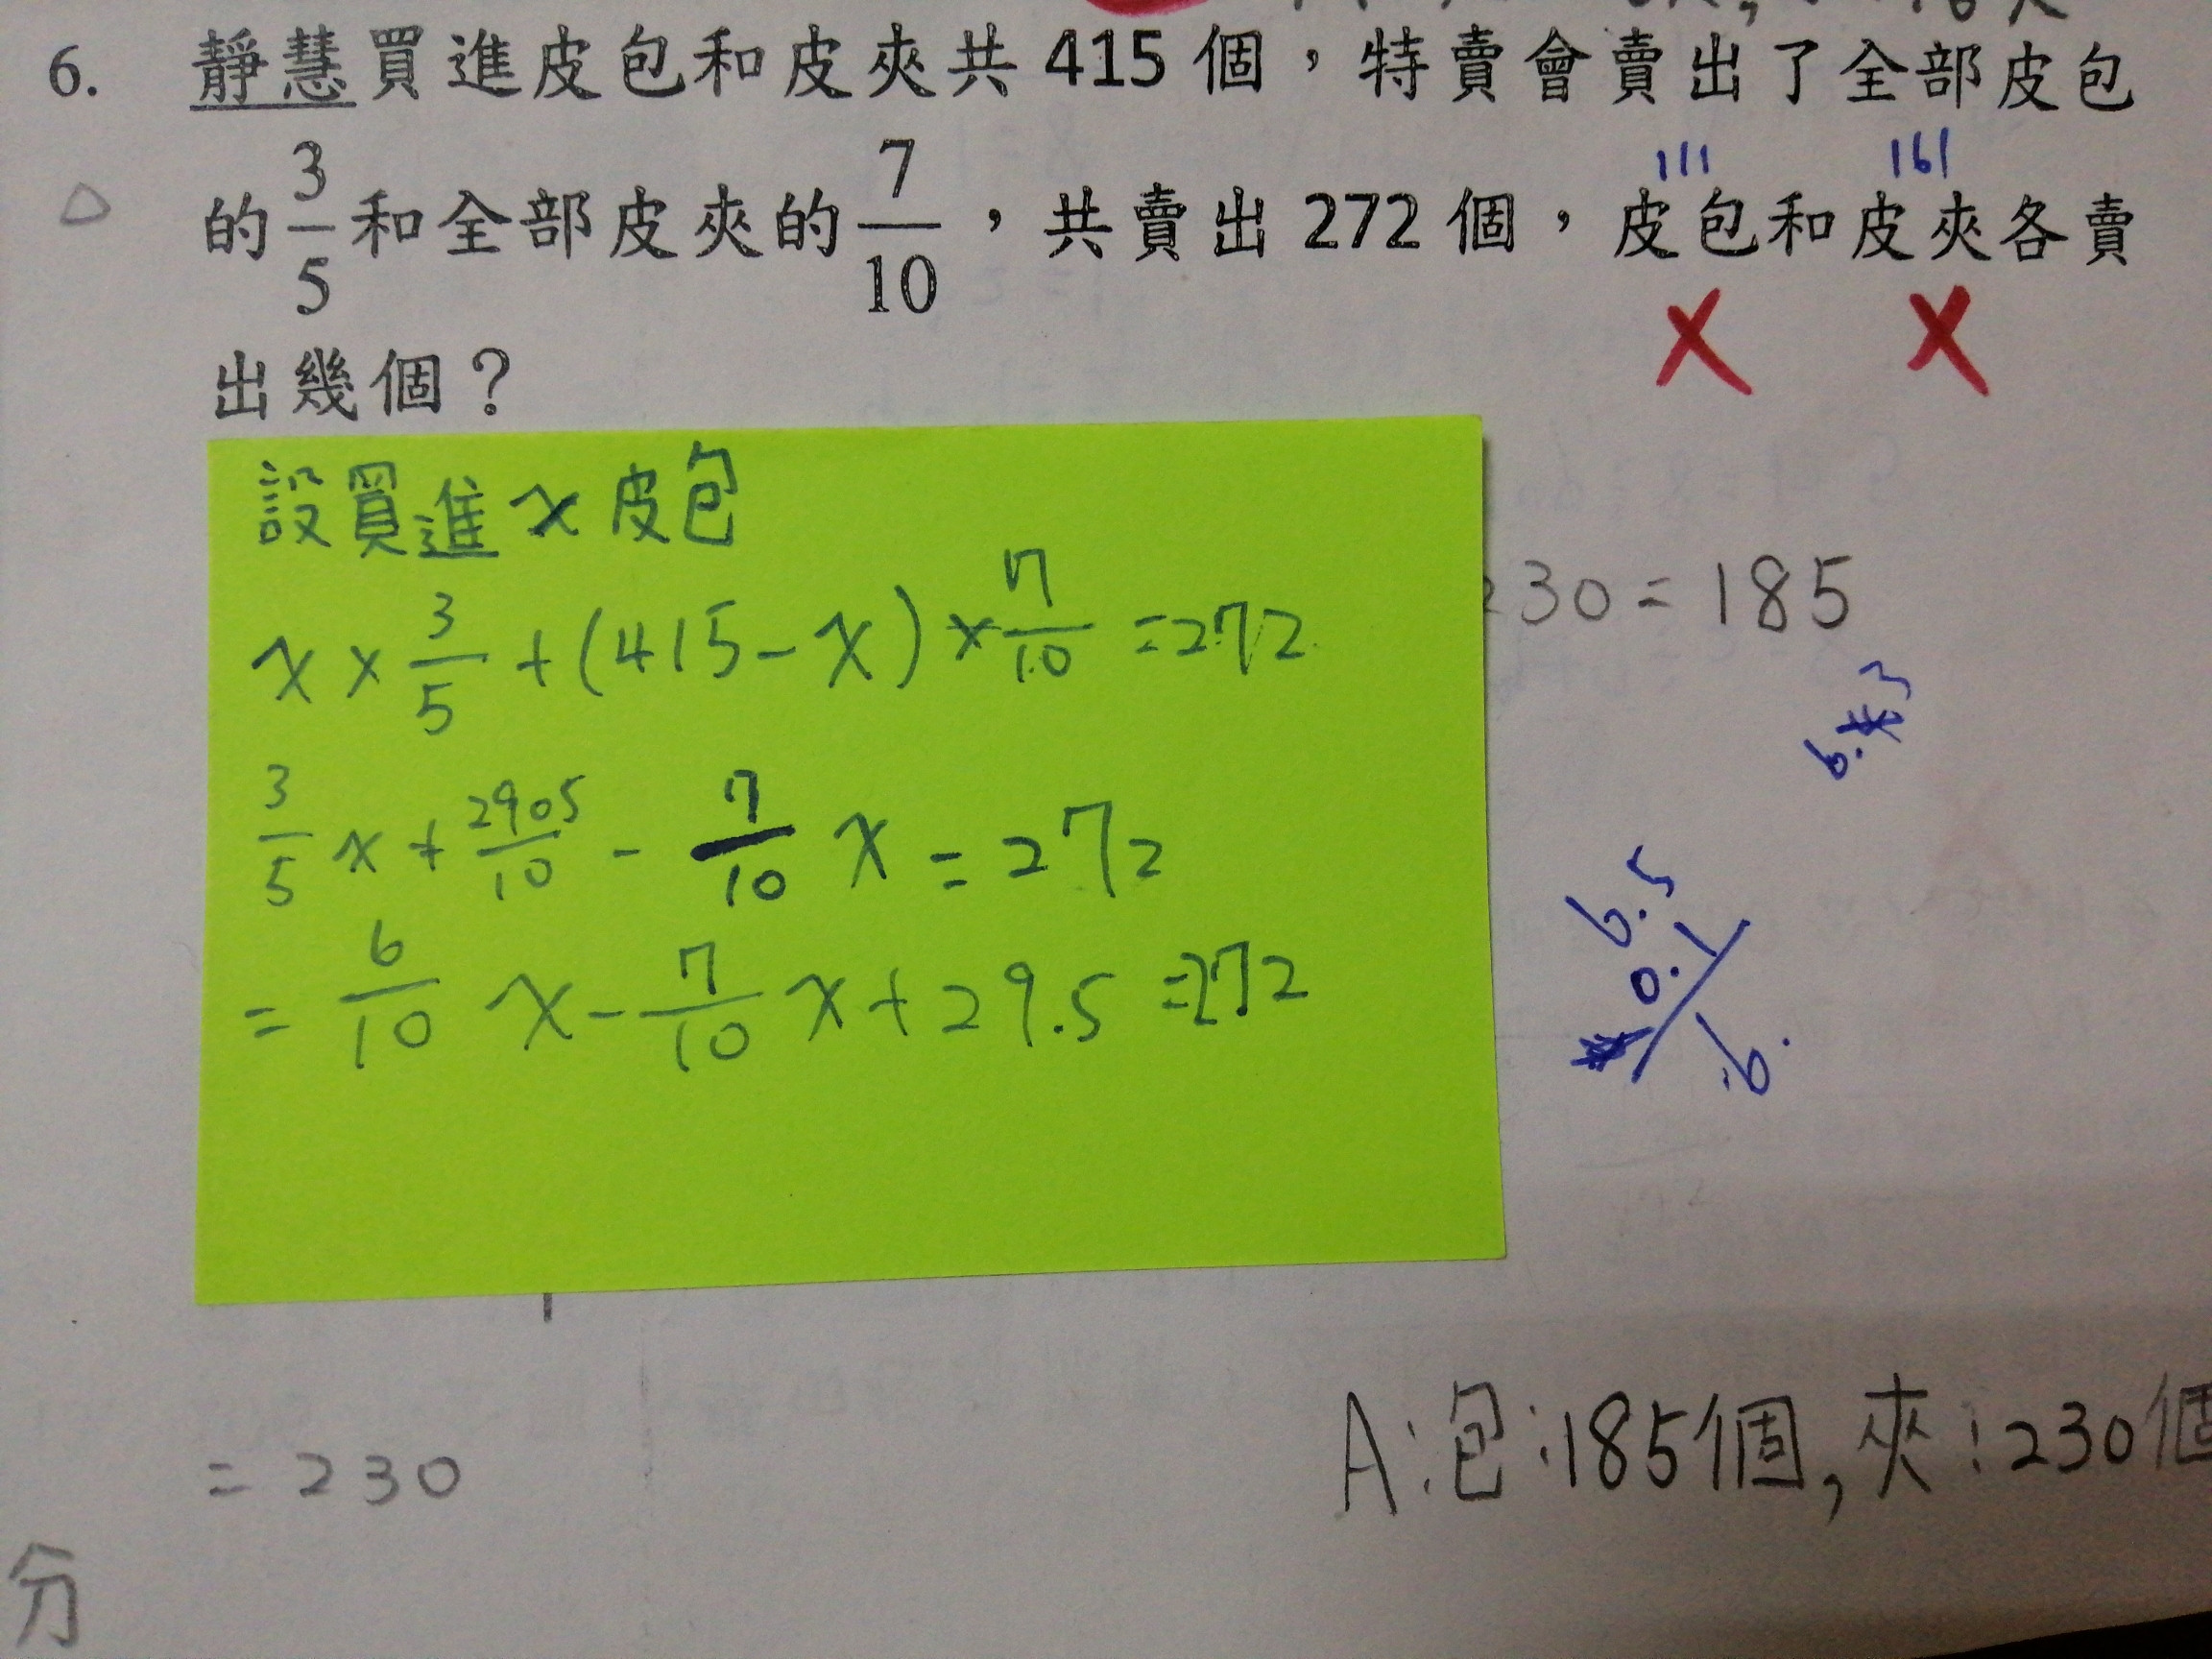 6. 靜慧買進皮包和皮夾共 415 個，特賣會賣出了全部皮包
111 161
的3/5和全部皮夾的7/10，共賣出 272 個，皮包和皮夾各賣
X X
出幾個？
設買進 x 皮包
x × 3/5 + (415 - x) × 7/10 = 272
30 = 185
3/5 x + 2905/10 - 7/10 x = 272
6.5
0.1
= 6/10 x - 7/10 x + 29.5 = 272
A:包:185個,夾:230個
= 230
分